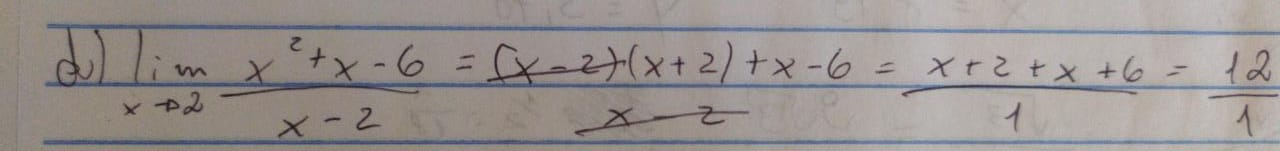 d) lim x→2 x²+x-6 / x-2 = (x-2)(x+2)+x-6 / x-2 = x+2+x+6 / 1 = 12 / 1